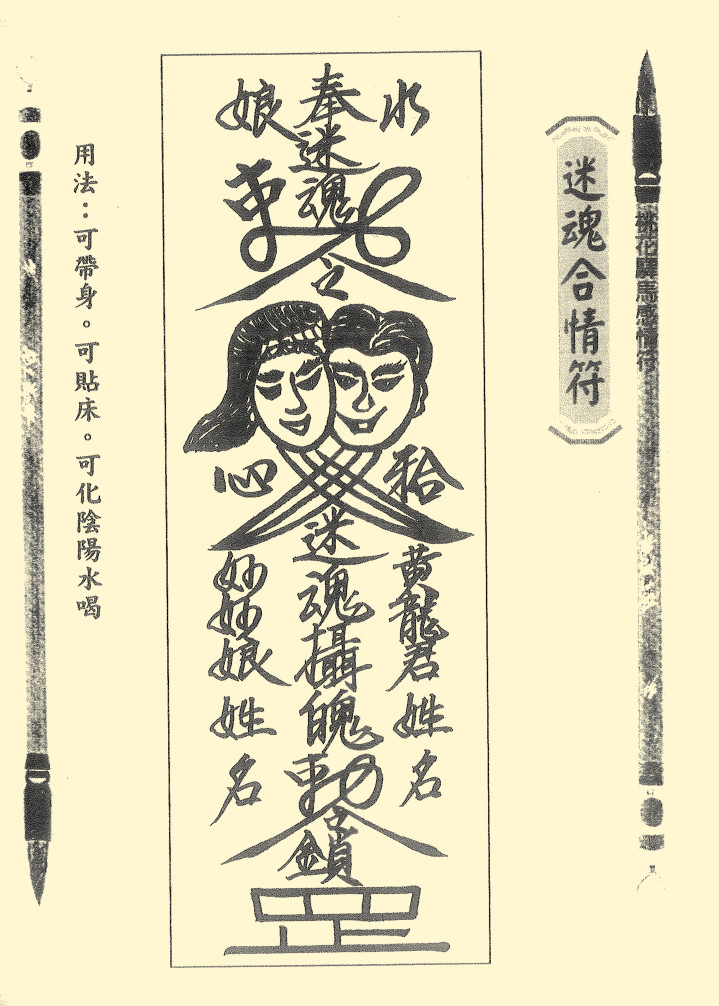 桃花驛馬感情符
迷魂合情符
水
奉迷魂
娘
心
黃龍君姓名
迷魂攝魄勅
鎖
罡
妙妙娘姓名
用法：可帶身。可貼床。可化陰陽水喝